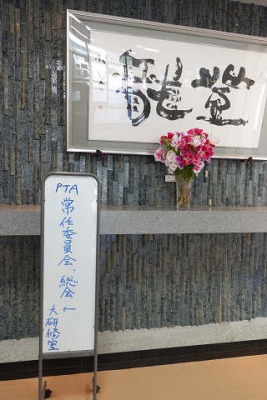 登龍
PTA
常任委員会、総会←
大研修室